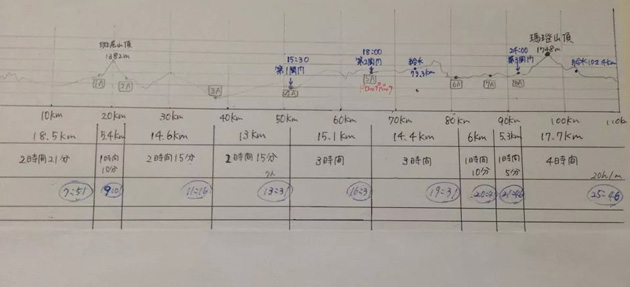 斑尾山頂
1382m
15:30
第1関門
18:00
第2関門
Drop Bag
給水
73.3km
24:00
第3関門
瑪瑙山頂
1748m
給水 102.4km
1A
2A
3A
4A
5A
6A
7A
8A
10km
20km
30km
40km
50km
60km
70km
80km
90km
100km
110k
18.5km
5.4km
14.6km
13km
15.1km
14.4km
6km
5.3km
17.7km
2時間21分
1時間
10分
2時間15分
2時間15分
3時間
3時間
1時間
10分
1時間
5分
4時間
7:51
9:01
11:16
13:31
16:31
19:31
21:46
25:46